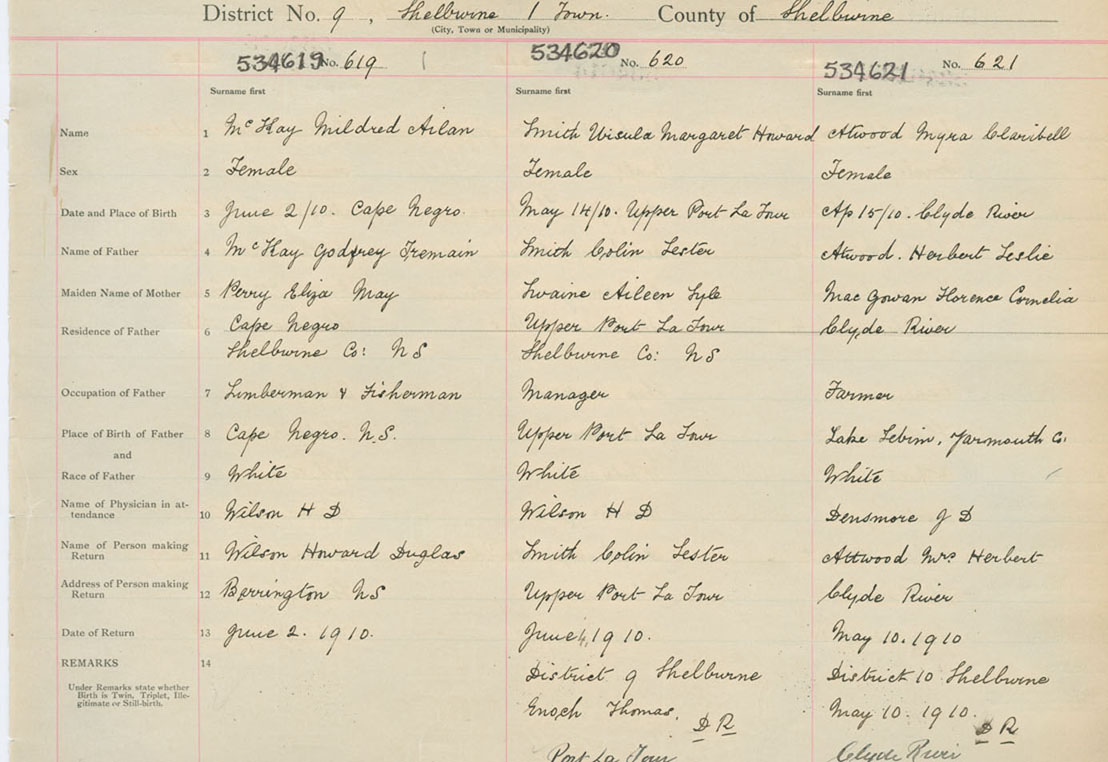 District No. 9, Shelburne / Town. County of Shelburne
(City, Town or Municipality)
534619 No. 619 534620 No. 620 534621 No. 621
Surname first Surname first Surname first
Name 1 McKay Mildred Ailan Smith Ursula Margaret Howard Atwood Myra Claribell
Sex 2 Female Female Female
Date and Place of Birth 3 June 2/10. Cape Negro. May 14/10. Upper Port La Tour Ap 15/10. Clyde River
Name of Father 4 McKay Godfrey Tremain Smith Colin Lester Atwood. Herbert Leslie
Maiden Name of Mother 5 Perry Eliza May Swaine Aileen Lyle Mac Gowan Florence Cornelia
Residence of Father 6 Cape Negro Upper Port La Tour Clyde River
Shelburne Co: NS Shelburne Co: NS
Occupation of Father 7 Limberman & Fisherman Manager Farmer
Place of Birth of Father 8 Cape Negro. N.S. Upper Port La Tour Lake , Yarmouth Co.
and
Race of Father 9 White White White
Name of Physician in at-
tendance 10 Wilson H D Wilson H D Densmore J D
Name of Person making
Return 11 Wilson Howard Duglas Smith Colin Lester Attwood Mrs Herbert
Address of Person making
Return 12 Barrington NS Upper Port La Tour Clyde River
Date of Return 13 June 2. 1910. June 1910. May 10. 1910
REMARKS 14 District 9 Shelburne District 10 Shelburne
Under Remarks state whether
Birth is Twin, Triplet, Ille-
gitimate or Still-birth.
Enoch Thomas. D R May 10. 1910. D R
Port La Tour Clyde River